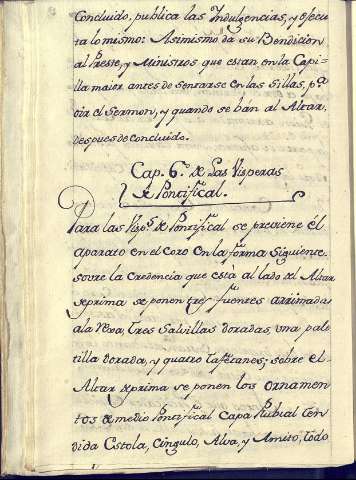 Concluido, publica las Indulgencias, y efecu
ta lo mismo: Asimismo da su Bendicion
al Preste, y Ministros que estan en la Capi-
lla maior antes de sentarse en las Sillas, pª
oir el Sermon, y quando se ban al Altar,
despues de concluido.
Cap. 6.º de las Visperas
de Pontifical.
Para las Vispˢ de Pontifical se previene él
aparato en el coro en la forma siguiente.
sovre la Credencia que está al lado del Altar
de prima se ponen tres fuentes arrimada
a la Vova, tres Salvillas doradas, una pale
tilla dorada, y quatro tafetanes; sobre el
Altar de prima se ponen los ornamen
tos de medio Pontifical Capa Plubial ten
dida Estola, Cingulo, Alva, y Amito, todo